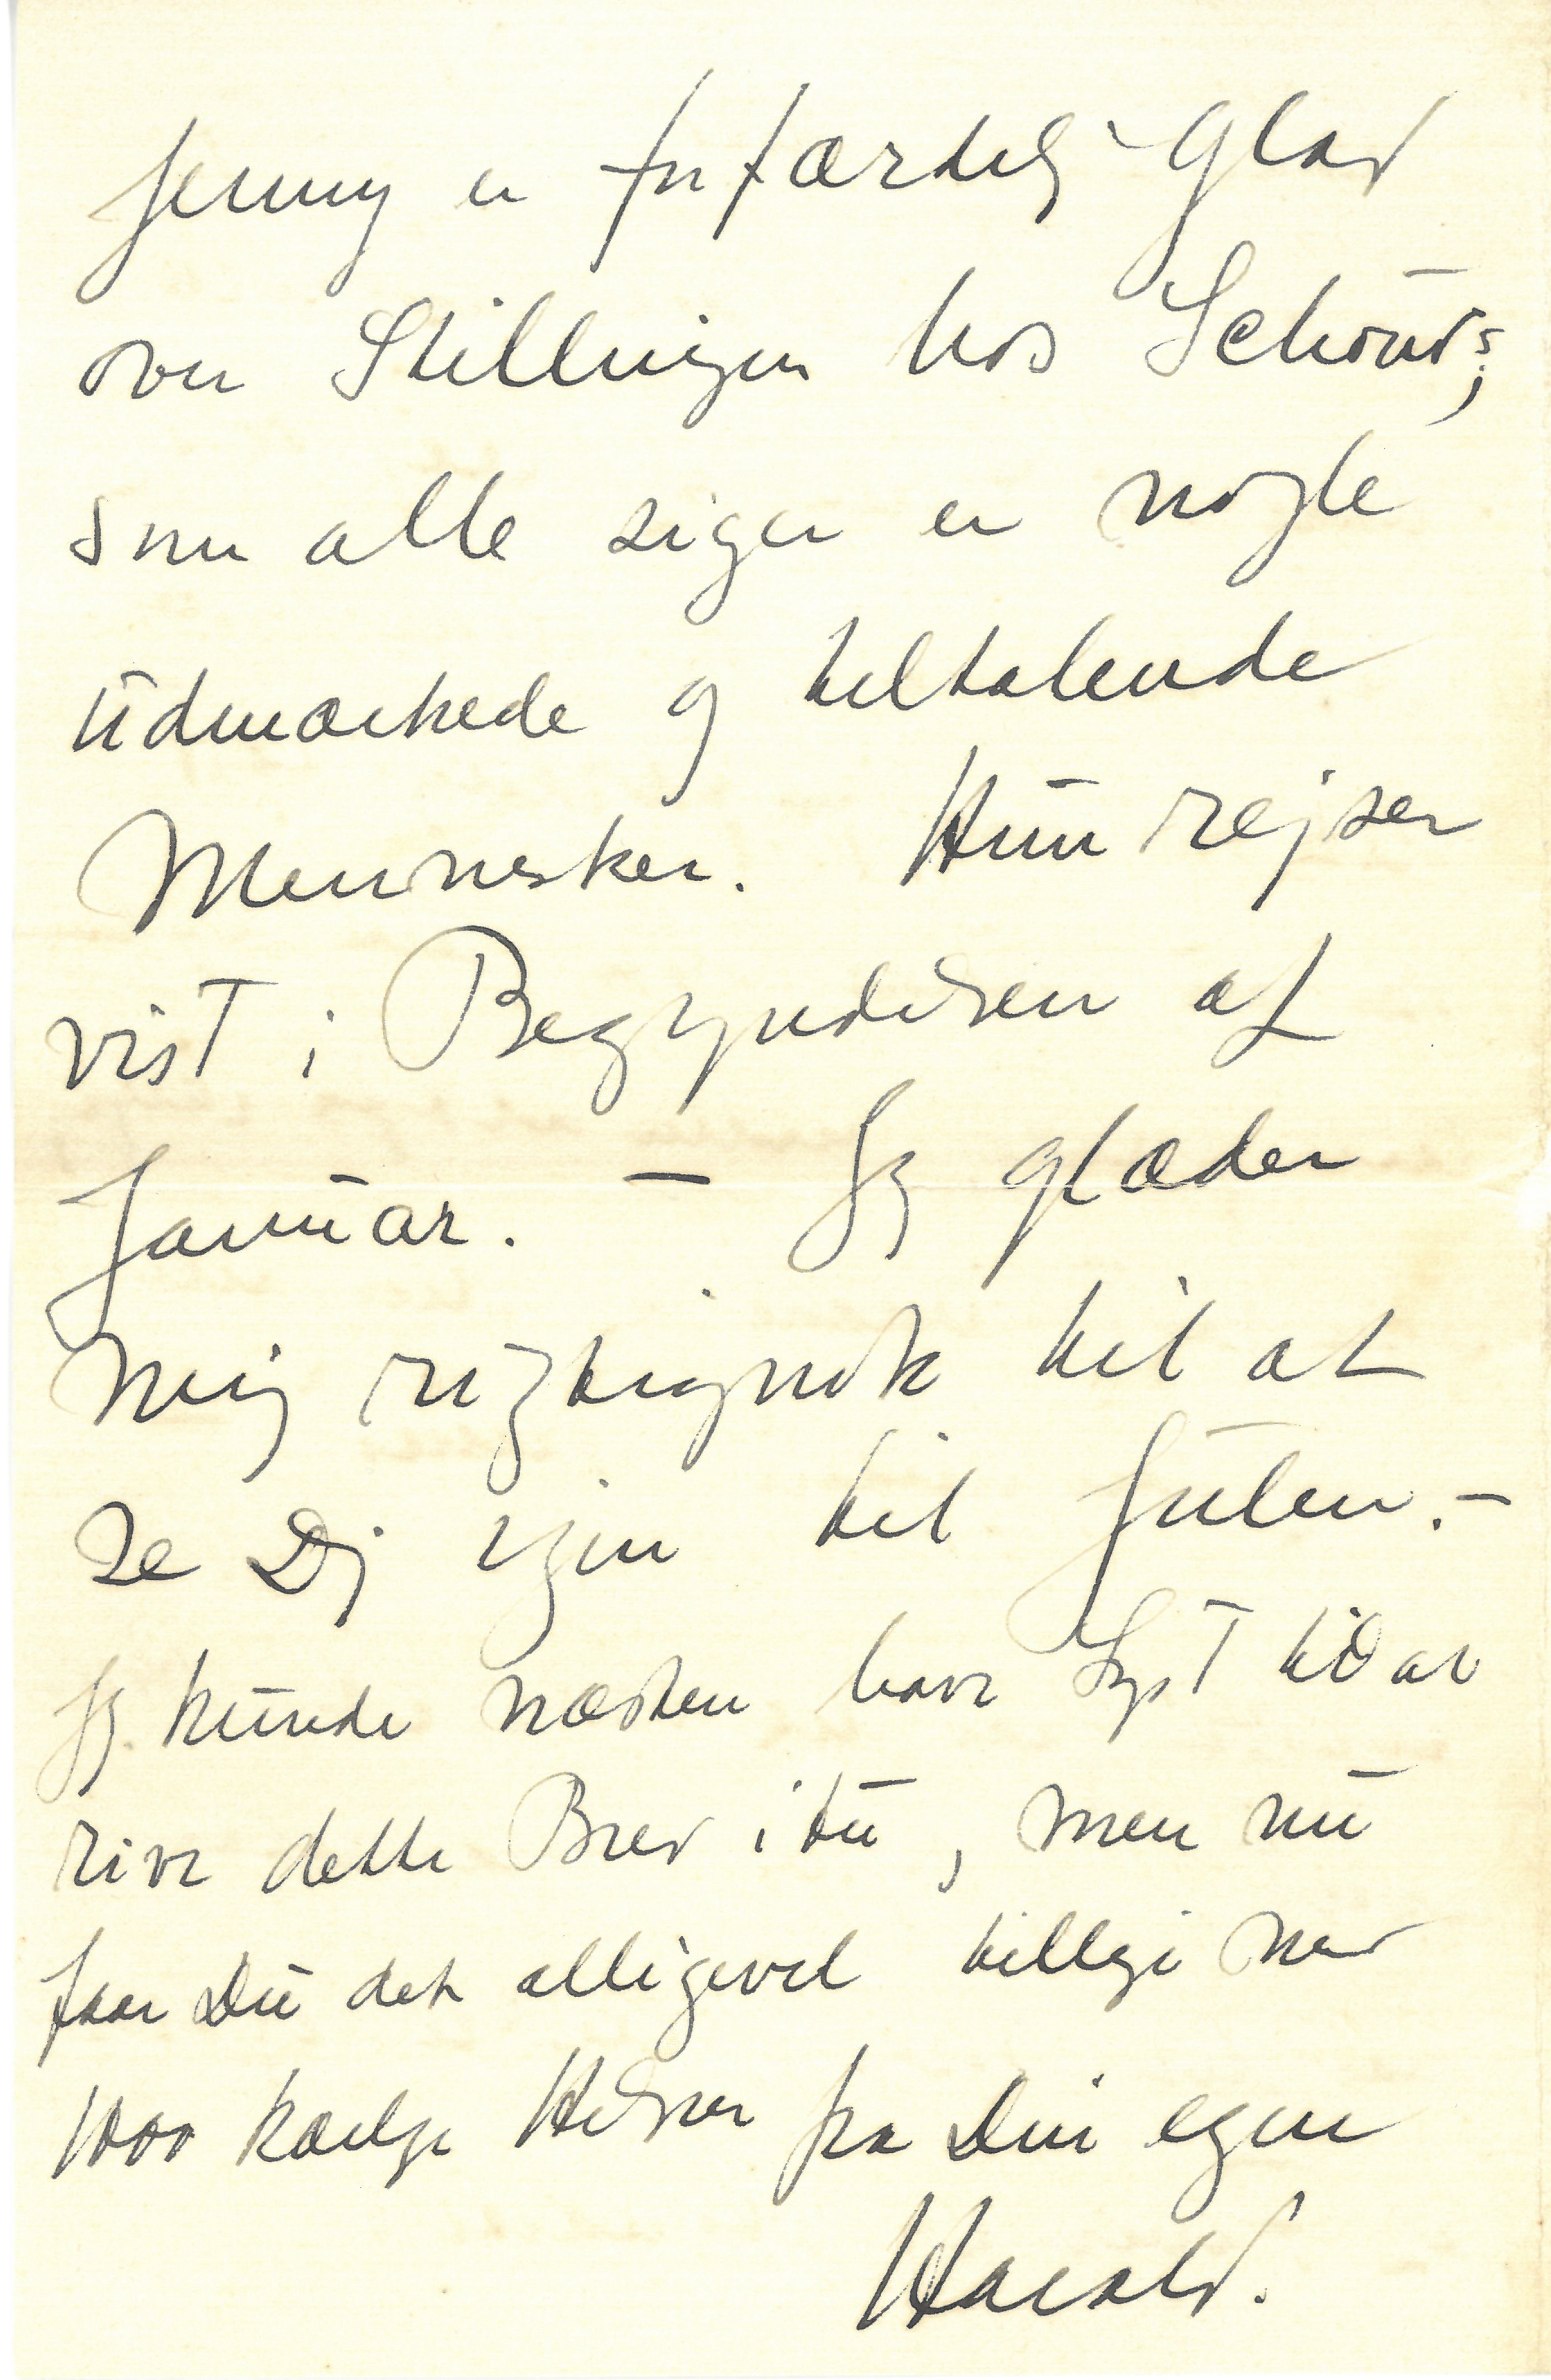 Jenny er forfærdelig glad
over Stillingen hos Schous;
som alle siger er nogle
udmærkede og tiltalende
Mennesker. Hun rejser
vist i Begyndelsen af
Januar. — Jeg glæder
mig rigtignok til at
se Dig igen til Julen. –
Jeg kunde næsten have Lyst til at
rive dette Brev itu, men nu
faar Du det alligevel tillige med
1000 kærlige Hilsner fra Din egen
Harald.